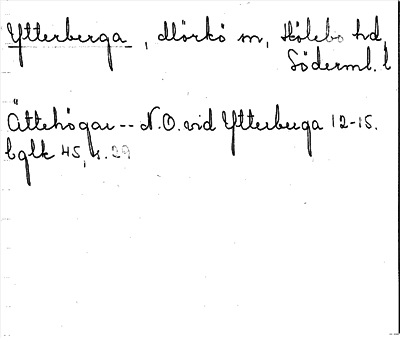 Ytterberga, Mörkö sn, Hölebo hd,
Söderml. l
Ättehögar -- N.O. vid Ytterberga 12-15.
bglk 45, s. 29